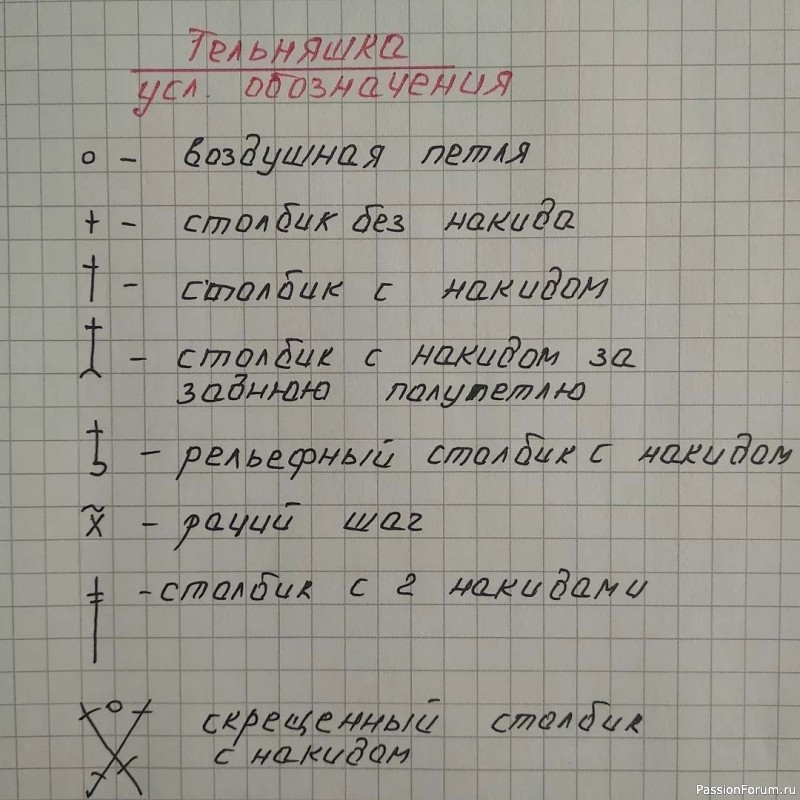 Тельняшка
усл. обозначения
о - воздушная петля
+ - столбик без накида
† - столбик с накидом
- столбик с накидом за
заднюю полупетлю
- рельефный столбик с накидом
x̃ - рачий шаг
‡ - столбик с 2 накидами
скрещенный столбик
с накидом
PassionForum.ru